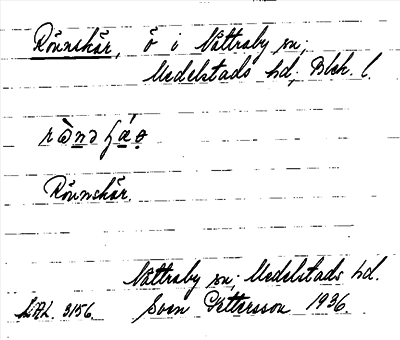 Rönnskär, ö i Nättraby sn;
Medelstads hd; Blek. l.
Rönnskär.
Nättraby sn; Medelstads hd.
LAL. 3156. Sven Pettersson 1936.